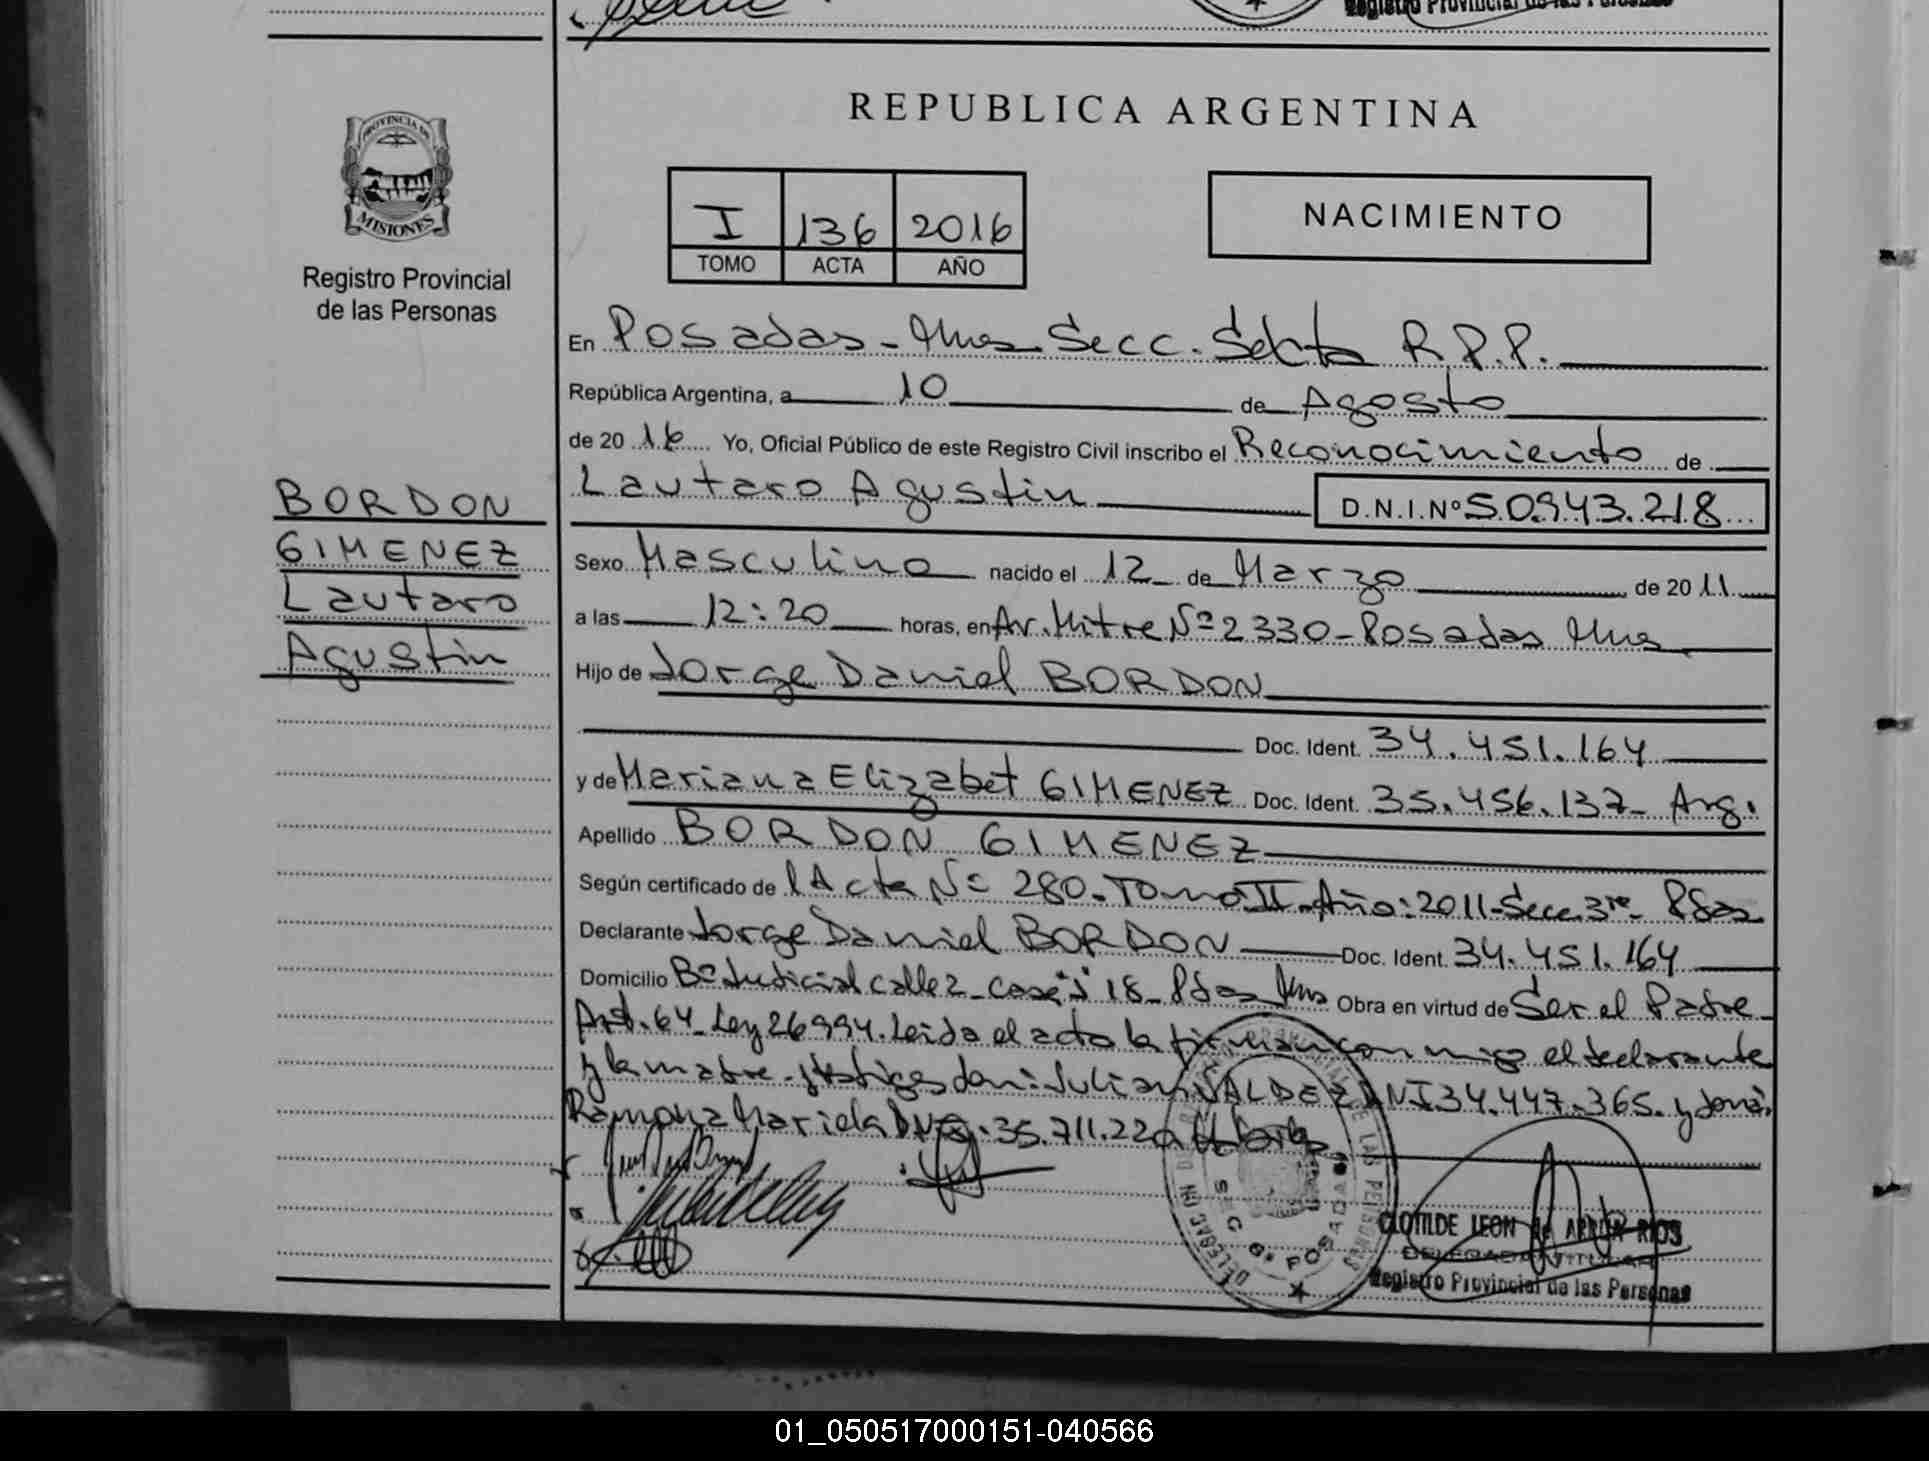 Registro Provincial de las Personas
REPUBLICA ARGENTINA
PROVINCIA DE
MISIONES
Registro Provincial
de las Personas
I 136 2016
TOMO ACTA AÑO
NACIMIENTO
BORDON
GIMENEZ
Lautaro
Agustin
En Posadas - Mnes. Secc. Sexta R.P.P.
República Argentina, a 10 de Agosto
de 20 16 Yo, Oficial Público de este Registro Civil inscribo el Reconocimiento de
Lautaro Agustin D.N.I.Nº 50.943.218
Sexo Masculino nacido el 12 de Marzo de 20 11
a las 12:20 horas, en Av. Mitre Nº 2330 - Posadas Mnes
Hijo de Jorge Daniel BORDON
Doc. Ident. 34.451.164
y de Mariana Elizabet GIMENEZ Doc. Ident. 35.456.137- Arg.
Apellido BORDON GIMENEZ
Según certificado de l Acta Nº 280- Tomo II- Año: 2011- Secc. 3ra- Pdas
Declarante Jorge Daniel BORDON Doc. Ident. 34.451.164
Domicilio Bº Judicial calle 2- casa 18- Pdas Mnes Obra en virtud de Ser el Padre
Art. 64- Ley 26994. Leida el acta la firman conmigo el declarante
y la madre- y testigos don: Julian VALDEZ DNI 34.447.365. y doña
Ramona Mariela 35.711.220
DELEGACION
DE LAS PERSONAS
SECC 6º POSADAS
CLOTILDE LEON de ARRUA RIOS
DELEGADA TITULAR
Registro Provincial de las Personas
01_050517000151-040566